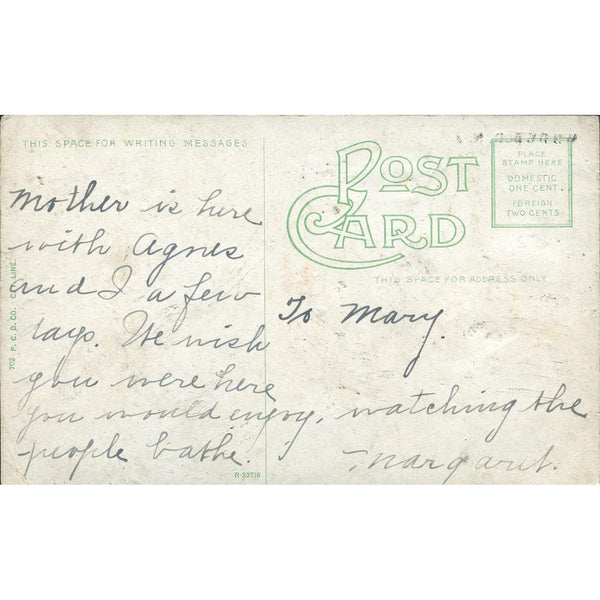 THIS SPACE FOR WRITING MESSAGES
POST CARD
PLACE
STAMP HERE
DOMESTIC
ONE CENT.
FOREIGN
TWO CENTS.
THIS SPACE FOR ADDRESS ONLY
Mother is here
with Agnes
and I a few
days. We wish
you were here
you would enjoy, watching the
people bathe.
To Mary.
Margaret.
703 P. C. D. CO.
LINE.
R-23718